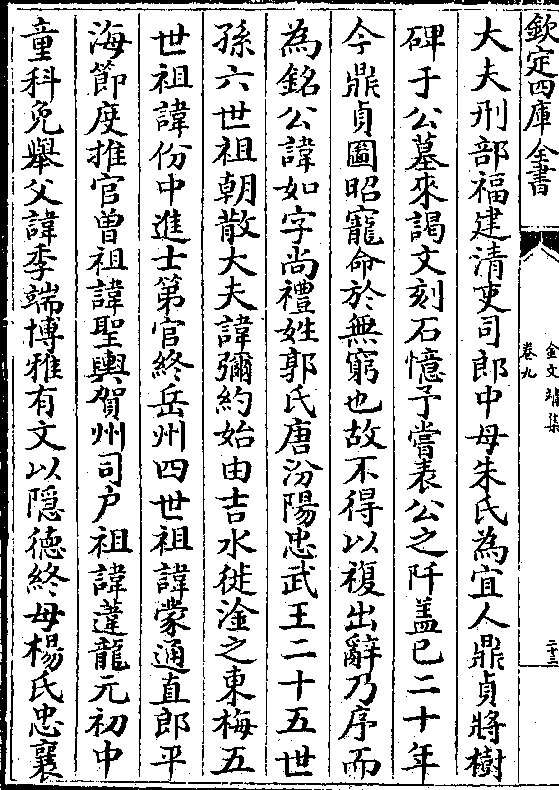 欽定四庫全書
金文靖集
卷九
二十三
大夫刑部福建清吏司郎中母朱氏為宜人鼎貞將樹
碑于公墓來謁文刻石憶予嘗表公之阡葢已二十年
今鼎貞圖昭寵命於無窮也故不得以複出辭乃序而
為銘公諱如字尚禮姓郭氏唐汾陽忠武王二十五世
孫六世祖朝散大夫諱彌約始由吉水徙淦之東梅五
世祖諱份中進士第官終岳州四世祖諱蒙通直郎平
海節度推官曽祖諱聖輿賀州司户祖諱蓬龍元初中
童科免舉父諱季端博雅有文以隱徳終母楊氏忠襄